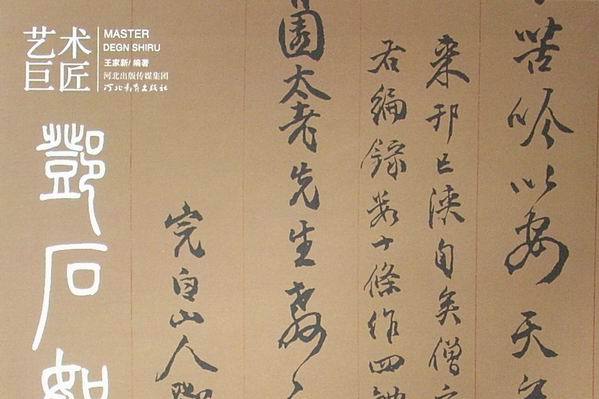 艺术
巨匠
MASTER
DEGN SHIRU
王家新/编著
河北出版传媒集团
河北教育出版社
鄧石如
苦吟以安天
来邗已浃旬矣僧
君编錄数十條作四
園太老先生教
完白山人鄧